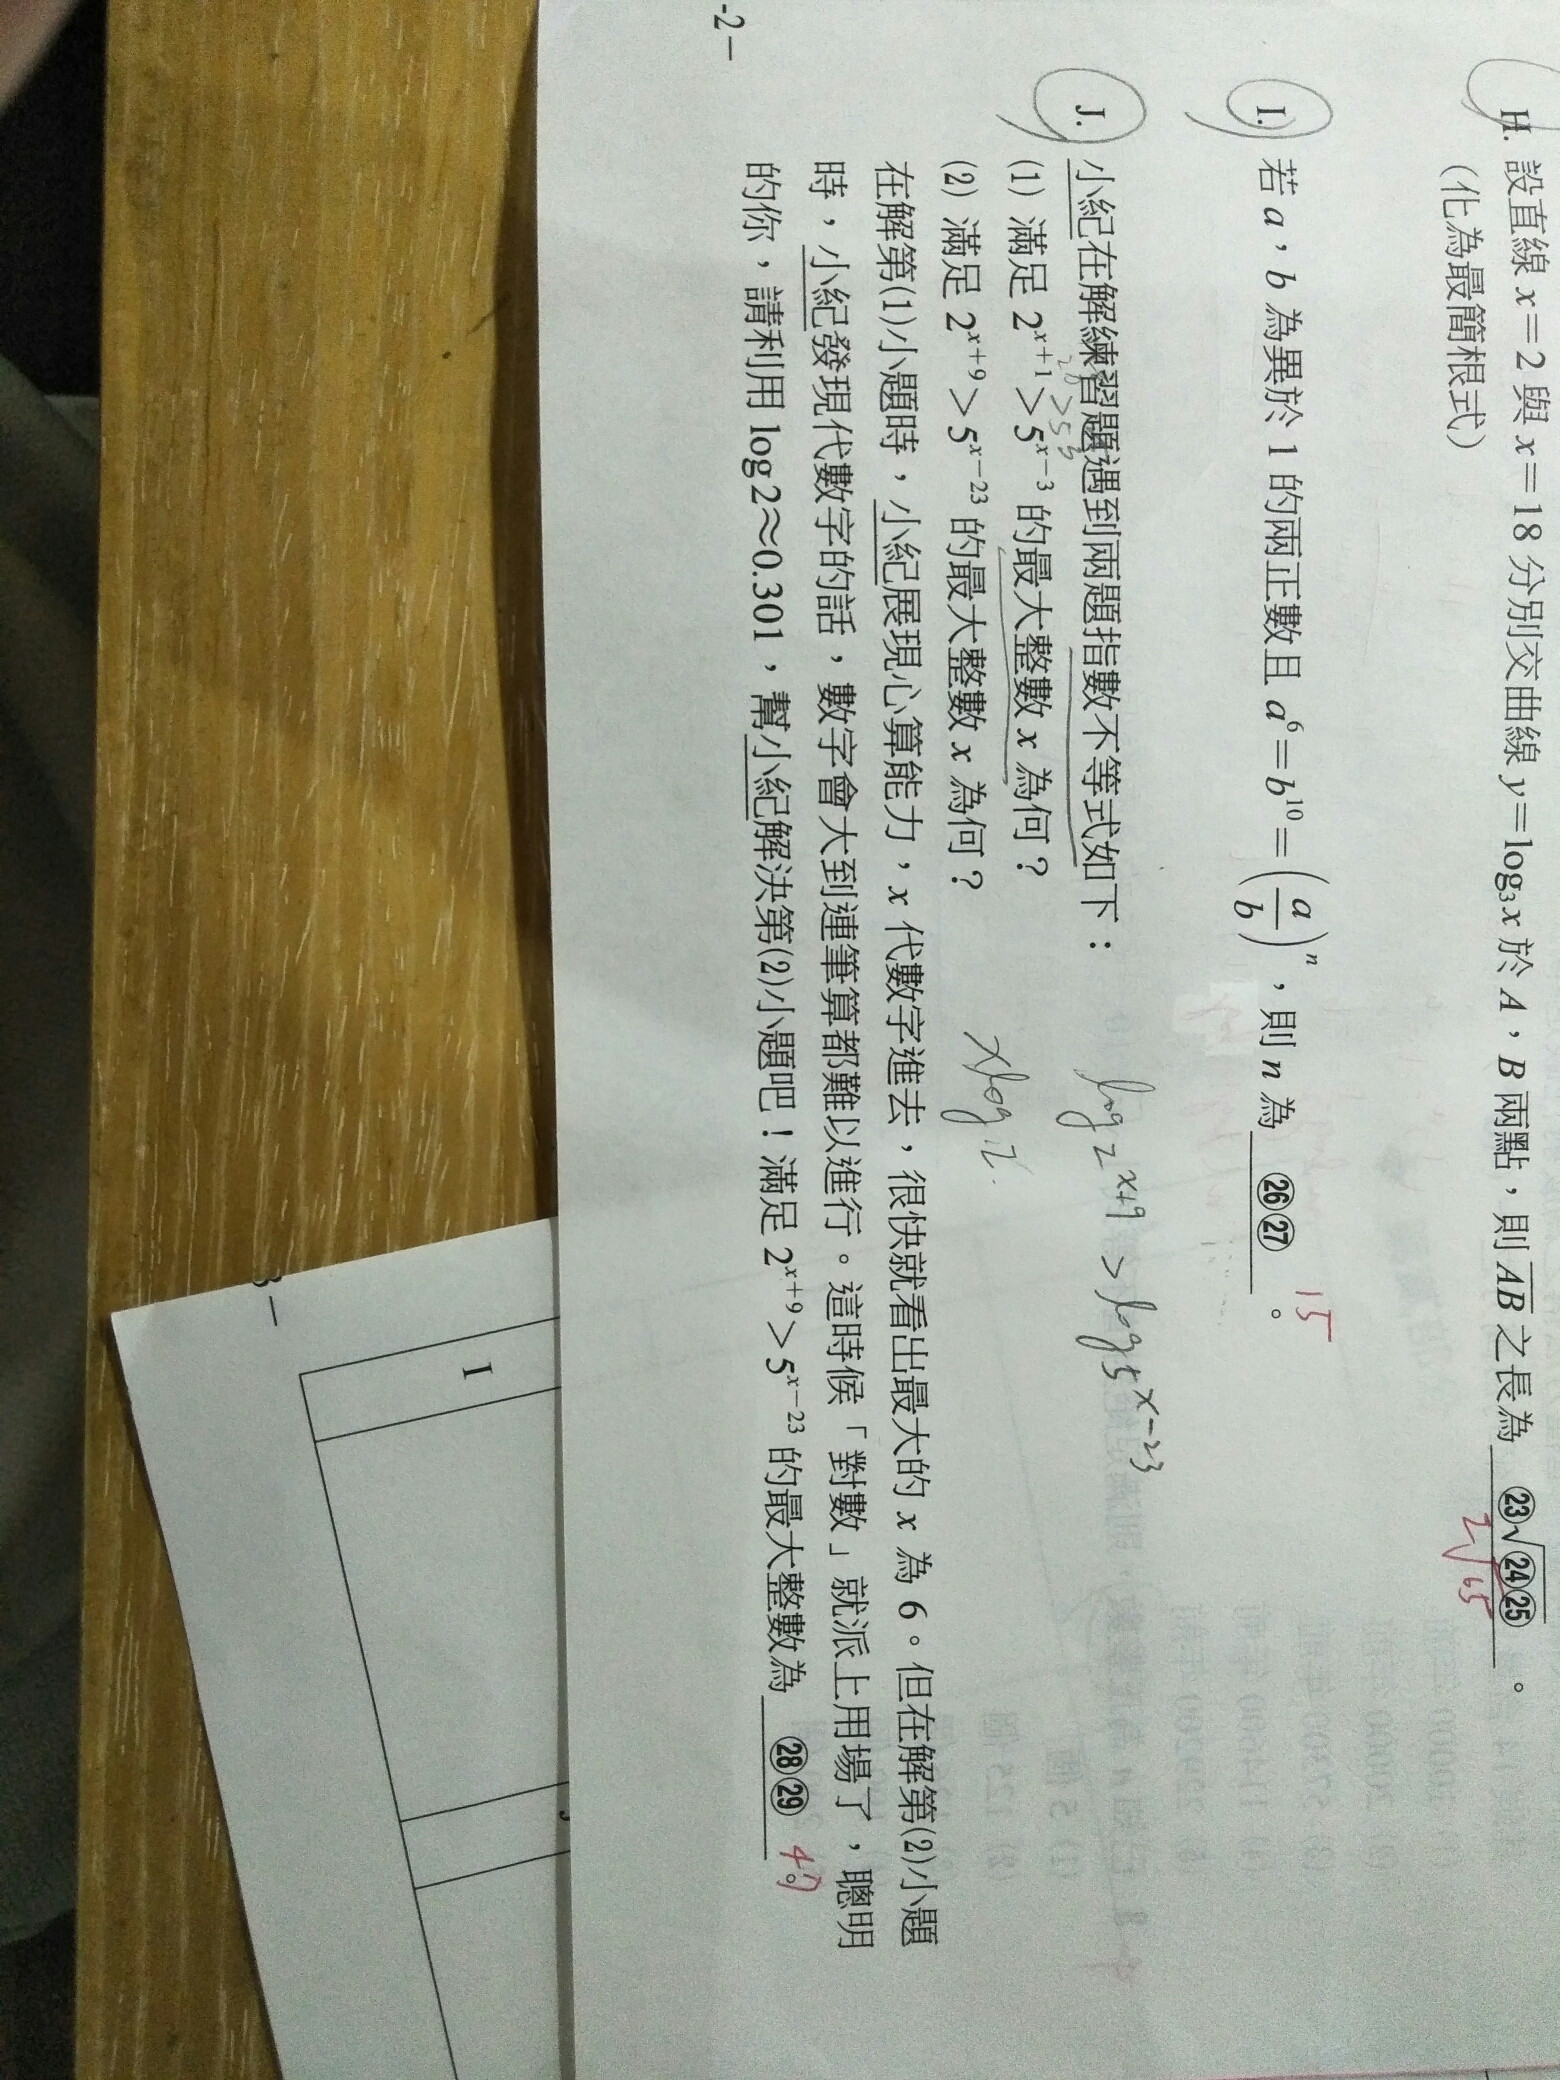 H. 設直線 x＝2 與 x＝18 分別交曲線 y＝log₃x 於 A，B 兩點，則 AB 之長為 ㉓√㉔㉕ 。
2√65
(化為最簡根式)
I. 若 a，b 為異於 1 的兩正數且 a⁶＝b¹⁰＝(a/b)ⁿ，則 n 為 ㉖㉗ 。
15
J. 小紀在解練習題遇到兩題指數不等式如下：
log 2^(x+9) > log 5^(x-23)
(1) 滿足 2^(x+1)＞5^(x−3) 的最大整數 x 為何？
(2) 滿足 2^(x+9)＞5^(x−23) 的最大整數 x 為何？
xlog 2
在解第(1)小題時，小紀展現心算能力，x 代數字進去，很快就看出最大的 x 為 6。但在解第(2)小題
時，小紀發現代數字的話，數字會大到連筆算都難以進行。這時候「對數」就派上用場了，聰明
的你，請利用 log2≈0.301，幫小紀解決第(2)小題吧！滿足 2^(x+9)＞5^(x−23) 的最大整數為 ㉘㉙ 。
-2-
3-
I